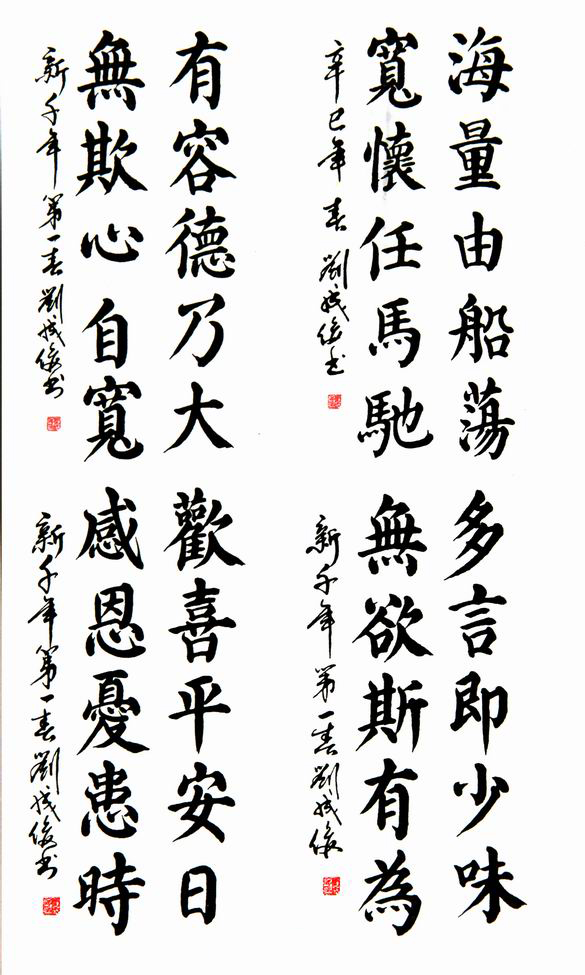 海量由船蕩
寬懷任馬馳
辛巳年春 劉成俊书
有容德乃大
無欺心自寬
新千年第一春劉成俊书
多言即少味
無欲斯有為
新千年第一春劉成俊
歡喜平安日
感恩憂患時
新千年第一春劉成俊书